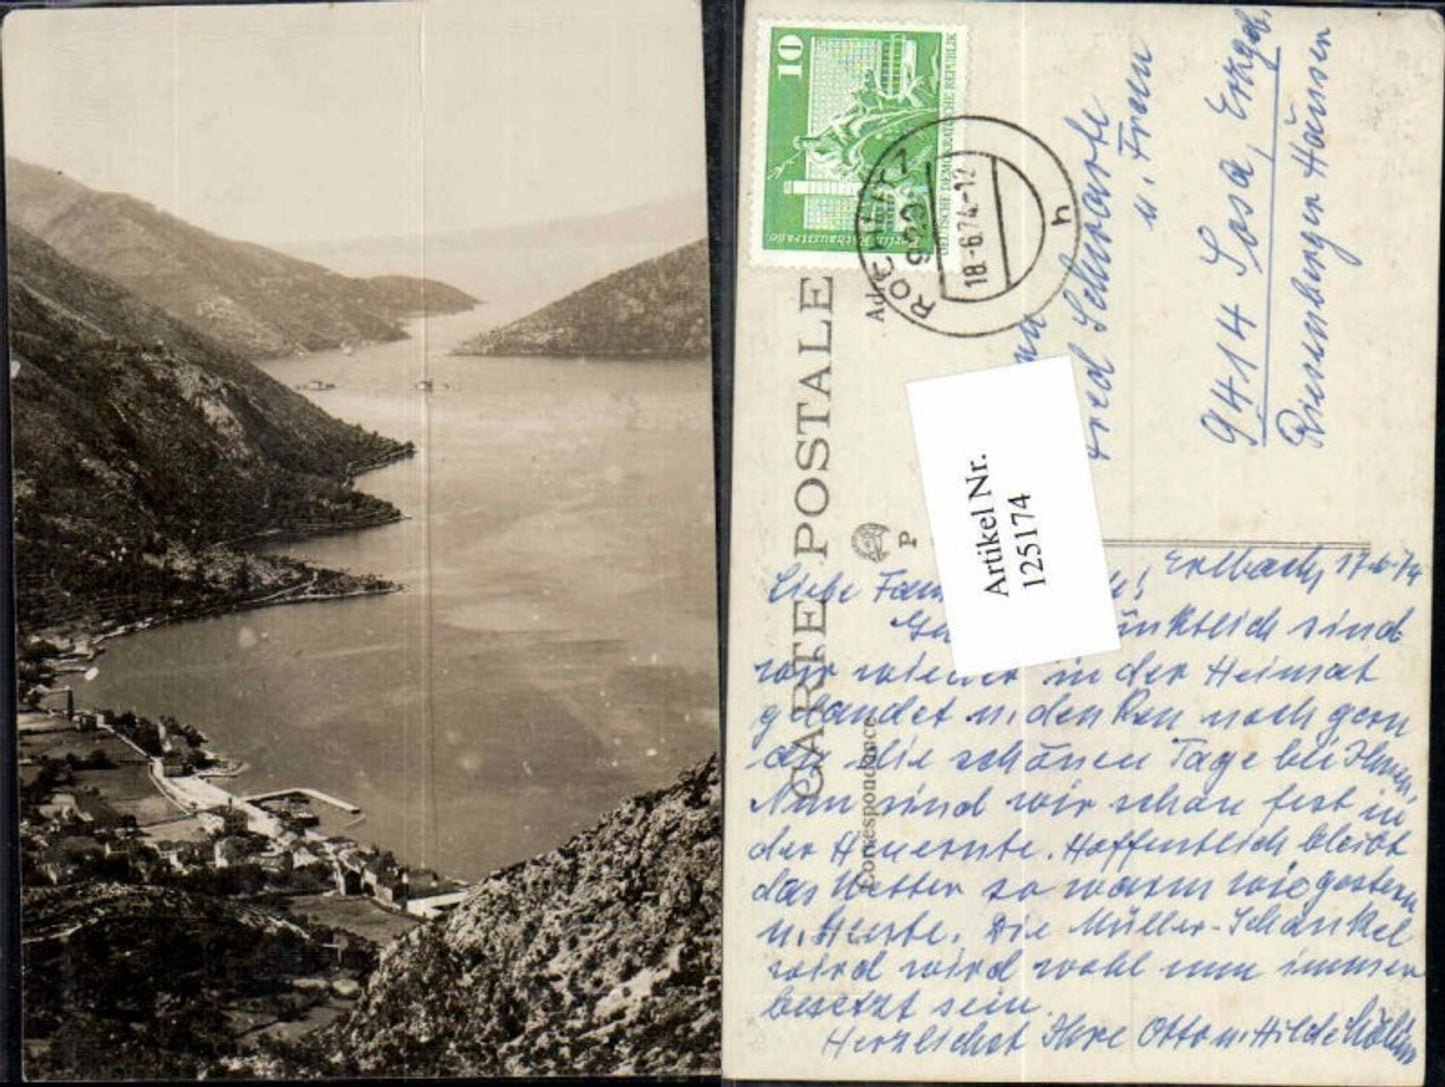 10
DEUTSCHE DEMOKRATISCHE REPUBLIK
Berlin, Rathausstrasse
ROCHLITZ
18.-6.74.-12
h
CARTE POSTALE
Correspondance
P
Artikel Nr.
125174
Fred Schwarte
u. Frau
9414 Sosa, Erzgeb.
Riesenberger Häuser
Erlbach, 17.6.74
Liebe
sind
wir wieder in der Heimat
gelandet u. denken noch gern
an die schönen Tage bei Ihnen.
Nun sind wir schon fest in
der Heuernte. Hoffentlich bleibt
das Wetter so warm wie gestern
u. Heute. Die Müller-Schaukel
wird wird wohl nun immer
besetzt sein.
Herzlichst Ihre Otto u. Hilde